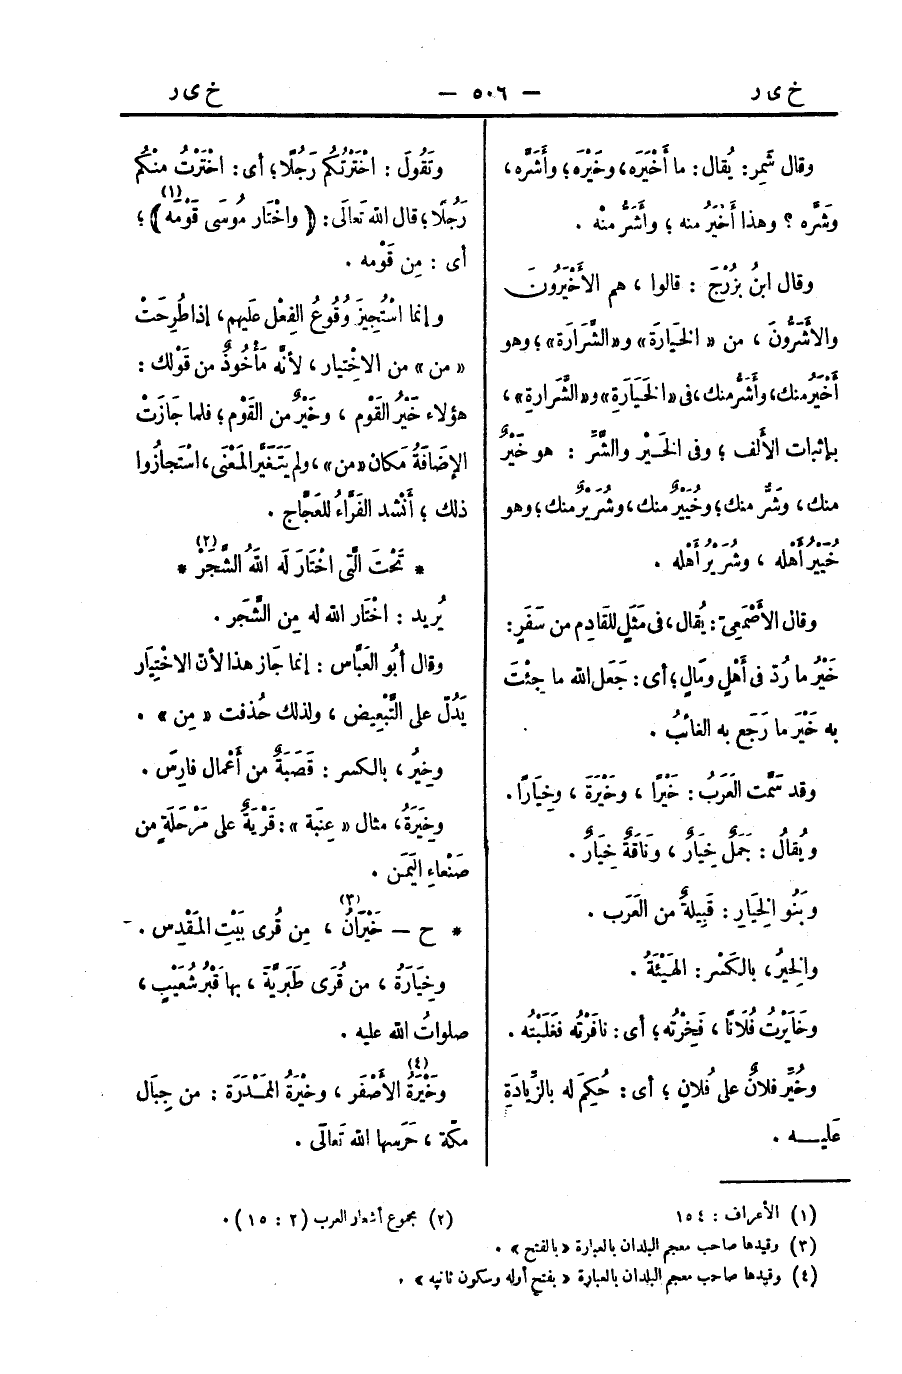 خ ى ر — ٥٠٦ — خ ى ر
وقال شَمِر: يُقال: ما أَخْيَرَه، وخَيْرَه؛ وأَشَرَّه،
وشَرَّه؟ وهذا أَخْيَرُ منه؛ وأَشَرُّ منْه.
وقال ابنُ بُزُرْجَ: قالوا، هم الأَخْيَرُونَ
والأَشَرُّونَ، من «الخَيَارَة» و«الشَّرَارَة»؛ وهو
أَخْيَرُ منك، وأَشَرُّ منك، فى «الخَيَارَةِ» و«الشَّرارةِ»،
بإثبات الأَلف؛ وفى الخَيْر والشَّرِّ: هو خَيْرٌ
منك، وشَرٌّ منك؛ وخُيَيْرٌ منك، وشُرَيْرٌ منك؛ وهو
خُيَيْرُ أَهْله، وشُرَيْرُ أَهْله.
وقال الأَصْمَعىّ: يُقال، فى مَثَلٍ للقَادِم من سَفَرٍ:
خَيْرُ ما رُدّ فى أَهْلٍ ومَالٍ؛ أى: جَعَل الله ما جِئْتَ
به خَيْرَ ما رَجَع به الغائبُ.
وقد سَمَّت العَرَبُ: خَيْرًا، وخَيْرَة، وخِيارًا.
ويُقالُ: جَمَلٌ خِيَارٌ، ونَاقَةٌ خِيَارٌ.
وبَنُو الخِيَارِ: قَبِيلةٌ من العَرَب.
والخِيرُ، بالكَسْر: الهَيْئَةُ.
وخَايَرْتُ فُلَانًا، فَخِرْتُه؛ أى: نافَرْتُه فَغَلَبْتُه.
وخُيِّر فلانٌ على فُلانٍ؛ أى: حُكِمَ له بالزِّيادَةِ
عَليــه.
وتَقُولَ: اخْتَرْتُكُم رَجُلًا؛ أى: اخْتَرْتُ منْكُم
رَجُلًا؛ قال الله تَعالَى: ﴿واخْتَار مُوسَى قَوْمَه﴾(١)؛
أى: مِن قَوْمه.
وإنما اسْتُجِيزَ وُقُوعُ الفِعْل عَليهم، إذا طُرِحَتْ
«من» من الاخْتِيار، لأنَّه مَأْخُوذٌ من قَوْلك:
هؤلاء خَيْرُ القَوْم، وخَيْرٌ من القَوْم؛ فلما جَازَتْ
الإضَافَةُ مَكان «من»، ولم يَتَغَيَّر المَعْنَى، اسْتَجازُوا
ذلك؛ أَنْشد الفَرَّاءُ للعَجَّاج.
* تَحْتَ الَّتى اخْتَارَ لَه اللهُ الشَّجَرْ(٢) *
يُريد: اخْتَار الله له مِن الشَّجَر.
وقال أبُو العَبَّاس: إنما جَاز هذا لأن الاخْتِيَار
يَدُلّ على التَّبْعِيض، ولذلك حُذفت «مِن».
وخِيرُ، بالكسر: قَصَبَةٌ من أَعْمال فارِسَ.
وخِيَرَةُ، مثال «عِنَبة»: قَرْيَةٌ على مَرْحَلَةٍ من
صَنْعاءِ اليَمَن.
* ح — خَيْرَانُ(٣)، مِن قُرى بَيْتِ المَقْدِس.
وخِيَارَةُ، من قُرَى طَبَرِيَّةَ، بها قَبْرُ شُعَيْبٍ،
صلواتُ الله عليه.
وخَيْرَةُ(٤) الأَصْفَر، وخَيْرَةُ المَمْدَرَة: من جِبَال
مكّة، حَرَسها الله تَعالَى.
(١) الأعراف: ١٥٤
(٢) مجموع أشعار العرب (٢: ١٥).
(٣) وقيدها صاحب معجم البلدان بالعبارة «بالفتح».
(٤) وقيدها صاحب معجم البلدان بالعبارة «بفتح أوله وسكون ثانيه».